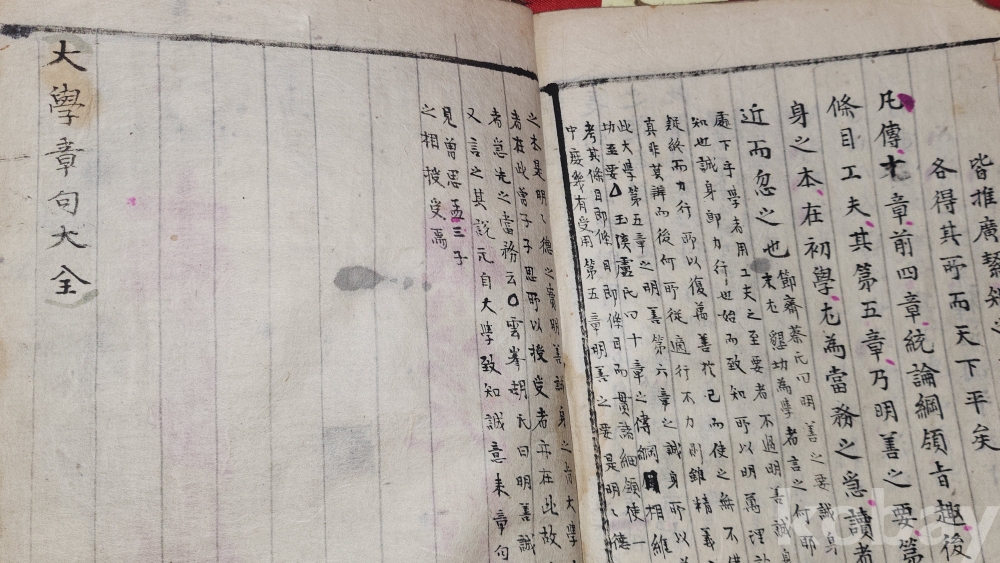 皆推廣絜矩之
各得其所而天下平矣
凡傳十章前四章統論綱領旨趣後
條目工夫其第五章乃明善之要第
身之本在初學尤為當務之急讀者
近而忽之也
節齋蔡氏曰明善之要誠身
末尤懇切為學者言之何耶
處下手學者用工夫之至要者不過明善誠身
知也誠身即力行也始而致知所以明萬理於
終而力行所以復萬善於己而使之無不
真非莫辨而後何所從適行不力則雖精義
此大學第五章之明善第六章之誠身所以
功至要玉溪盧氏曰十章之傳綱目相維
考其條目即條目即條目而貫諸綱領使一
中庶幾有受用第五章明善之要是明明德
之本是明明德之實明善誠身之旨大學
者在此曾子子思所以授受者亦在此故
者急先之當務云雲峯胡氏曰明善誠
又言之其說元自大學致知誠意來章句
見曾思孟三子
之相授受焉
大學章句大全
kobay